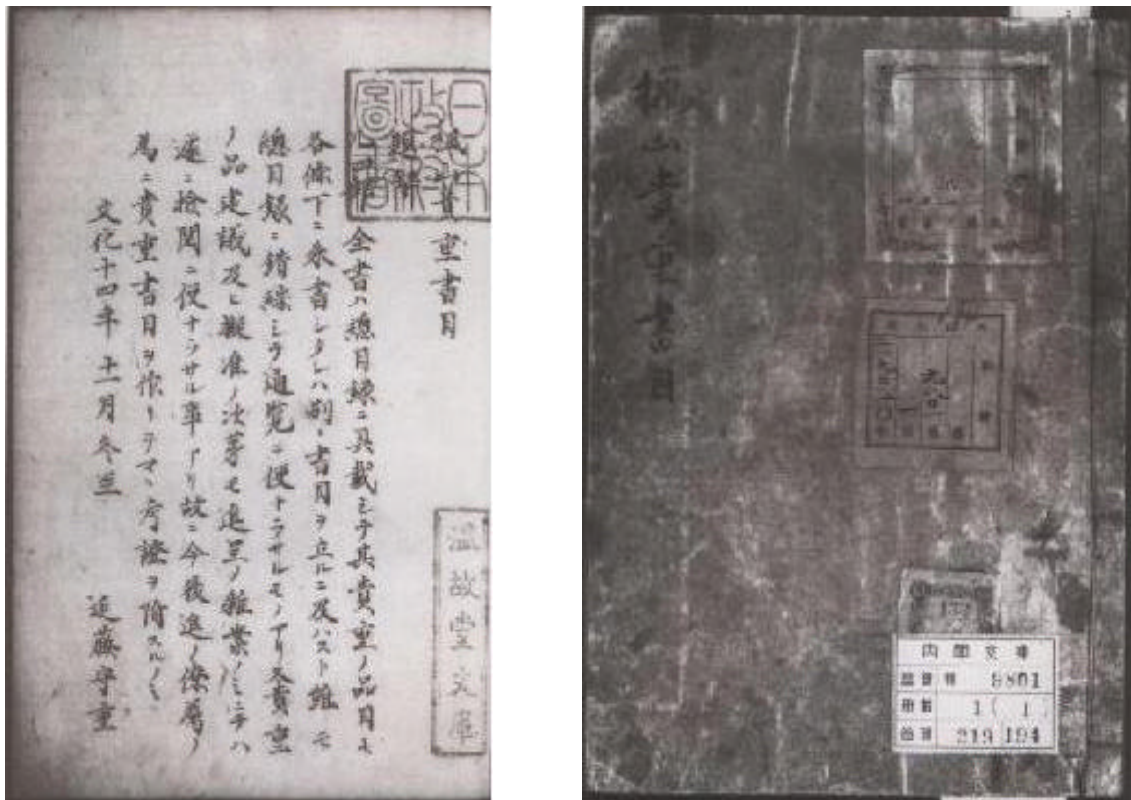 貴重書目
全書ハ總目録ニ具載シテ其貴重ノ品目モ
各條下ニ朱書シタレハ別ニ書目ヲ立ルニ及ハスト雖モ
總目録ニ錯綜シテ通覧ニ便ナラサルモノアリ又貴重
ノ品建議及ヒ擬准ノ次第モ進呈ノ雑業ノミニテハ
遽ニ撿閲ニ便ナラサル事アリ故ニ今後進ノ僚属ノ
為ニ貴重書目ヲ作リテマヽ考證ヲ附スルノミ
文化十四年十一月冬至
近藤守重
日本
政府
圖書
温故堂文庫
山貴重書目
内閣文庫
番號 8801
冊數 1 ( 1 )
函號 219 194